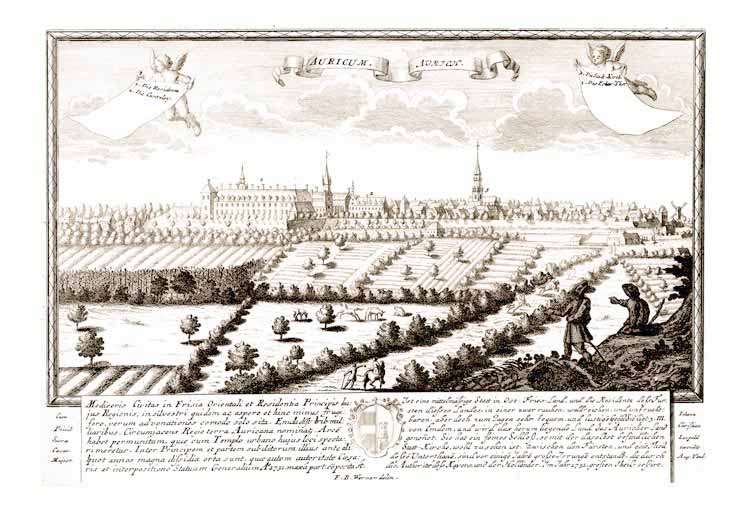 AURICUM. AURICH.
1. Die Residenz
2. Die Cantzley.
3. Die Stadt Kirch
4. Das Thor
Mediocris Civitas in Frisia Orientali et Residentia Principis hu-
jus Regionis, in silvestri quidem ac aspero et hinc minus frugi-
fero, verum ad venationes comodo solo sita. Emda diss. tribus mil-
liaribus. Circumjacens Regio terra Auricana nominat. Arcē
habet permunitam, quæ cum Templo urbano hujus loci specta-
ri meretur. Inter Principem et partem subditorum illius ante ali-
quot annos magna dissidia orta sunt, quæ autem autoritate Cæsa-
ris et interpositione Statuum Generalium Aō 1731 maxā parte sopita st.
Ist eine mittelmäsige Statt in Ost-Fries-Land, und die Residentz des Für-
sten dieses Landes in einer zwar rauhen, waldreichen und unfrucht-
baren, aber doch zum Jagen sehr bequem und lustigen Gegend 3. M.
von Emden und wird das herum liegende Land das Auricher Land
genennt. Sie hat ein feines Schloß, so mit der daselbst befindlichen
Statt-Kirche, wohl zu sehen ist. Zwischen dem Fürsten, und ein Theil
dessen Unterthanen, sind vor einige Jahre große Unruhe entstanden, die durch
die Autorität des Kaysers und der Holländer, Im Jahr 1731 grosten theils cessirt.
Cum
Privil
Sacræ
Cæsar
Majest.
Iohann
Christian
Leopold
excudit
Aug. Vind.
F. B. Werner delin.